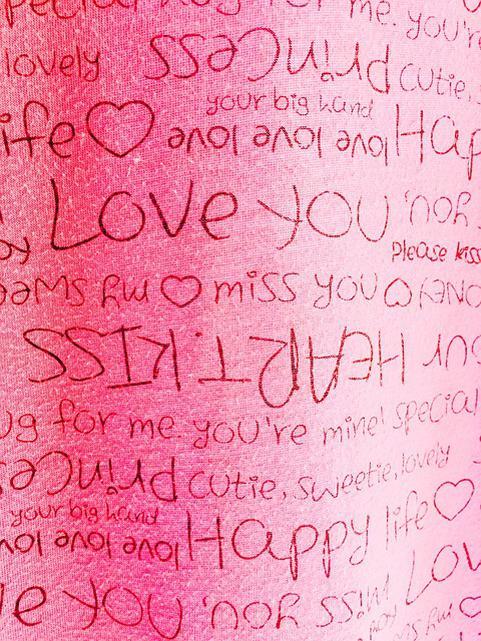 pecial hug for me. you're
lovely princess cutie, s
your big hand
ife ♡ love love love Hap
Love you you,
Please kiss
my swee ♡ miss you ♡
HEART KISS
ug for me. you're mine! special
princess cutie, sweetie, lovely
your big hand
love love love Happy life ♡
ve you miss you, Lov